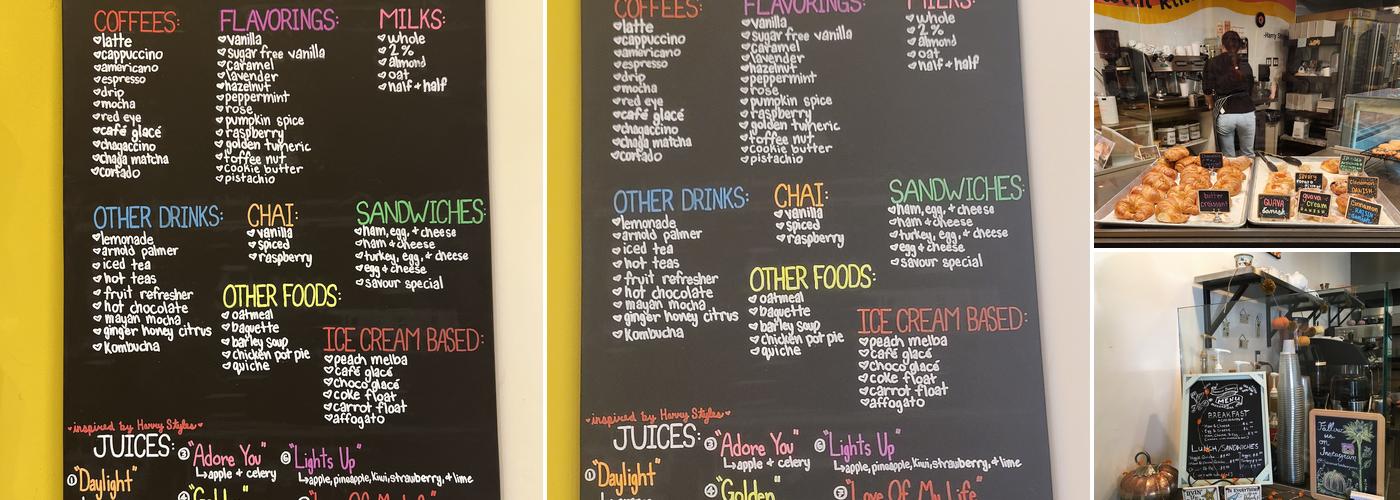 COFFEES:
latte
cappuccino
americano
espresso
drip
mocha
red eye
café glacé
chagaccino
chaga matcha
cortado
FLAVORINGS:
vanilla
sugar free vanilla
caramel
lavender
hazelnut
peppermint
rose
pumpkin spice
raspberry
golden tumeric
toffee nut
cookie butter
pistachio
MILKS:
whole
2%
almond
oat
half + half
OTHER DRINKS:
lemonade
arnold palmer
iced tea
hot teas
fruit refresher
hot chocolate
mayan mocha
ginger honey citrus
Kombucha
CHAI:
vanilla
spiced
raspberry
SANDWICHES:
ham, egg, + cheese
ham + cheese
turkey, egg, + cheese
egg + cheese
savour special
OTHER FOODS:
oatmeal
baguette
barley soup
chicken pot pie
quiche
ICE CREAM BASED:
peach melba
café glacé
choco glacé
coke float
carrot float
affogato
inspired by Harry Styles
JUICES:
① "Daylight"
③ "Adore You"
↳ apple + celery
⑥ "Lights Up"
↳ apple, pineapple, kiwi, strawberry, + lime
COFFEES:
latte
cappuccino
americano
espresso
drip
mocha
red eye
café glacé
chagaccino
chaga matcha
cortado
FLAVORINGS:
vanilla
sugar free vanilla
caramel
lavender
hazelnut
peppermint
rose
pumpkin spice
raspberry
golden tumeric
toffee nut
cookie butter
pistachio
MILKS:
whole
2%
almond
oat
half + half
OTHER DRINKS:
lemonade
arnold palmer
iced tea
hot teas
fruit refresher
hot chocolate
mayan mocha
ginger honey citrus
Kombucha
CHAI:
vanilla
spiced
raspberry
SANDWICHES:
ham, egg, + cheese
ham + cheese
turkey, egg, + cheese
egg + cheese
savour special
OTHER FOODS:
oatmeal
baguette
barley soup
chicken pot pie
quiche
ICE CREAM BASED:
peach melba
café glacé
choco glacé
coke float
carrot float
affogato
inspired by Harry Styles
JUICES:
① "Daylight"
③ "Adore You"
↳ apple + celery
④ "Golden"
⑥ "Lights Up"
↳ apple, pineapple, kiwi, strawberry, + lime
⑦ "Love Of My Life"
-Harry
butter
croissant
GUAVA
danish
guava
cream
cinnamon
DANISH
cinnamon
RAISIN
MENU
BREAKFAST
LUNCH/SANDWICHES
Follow
us
on
Instagram